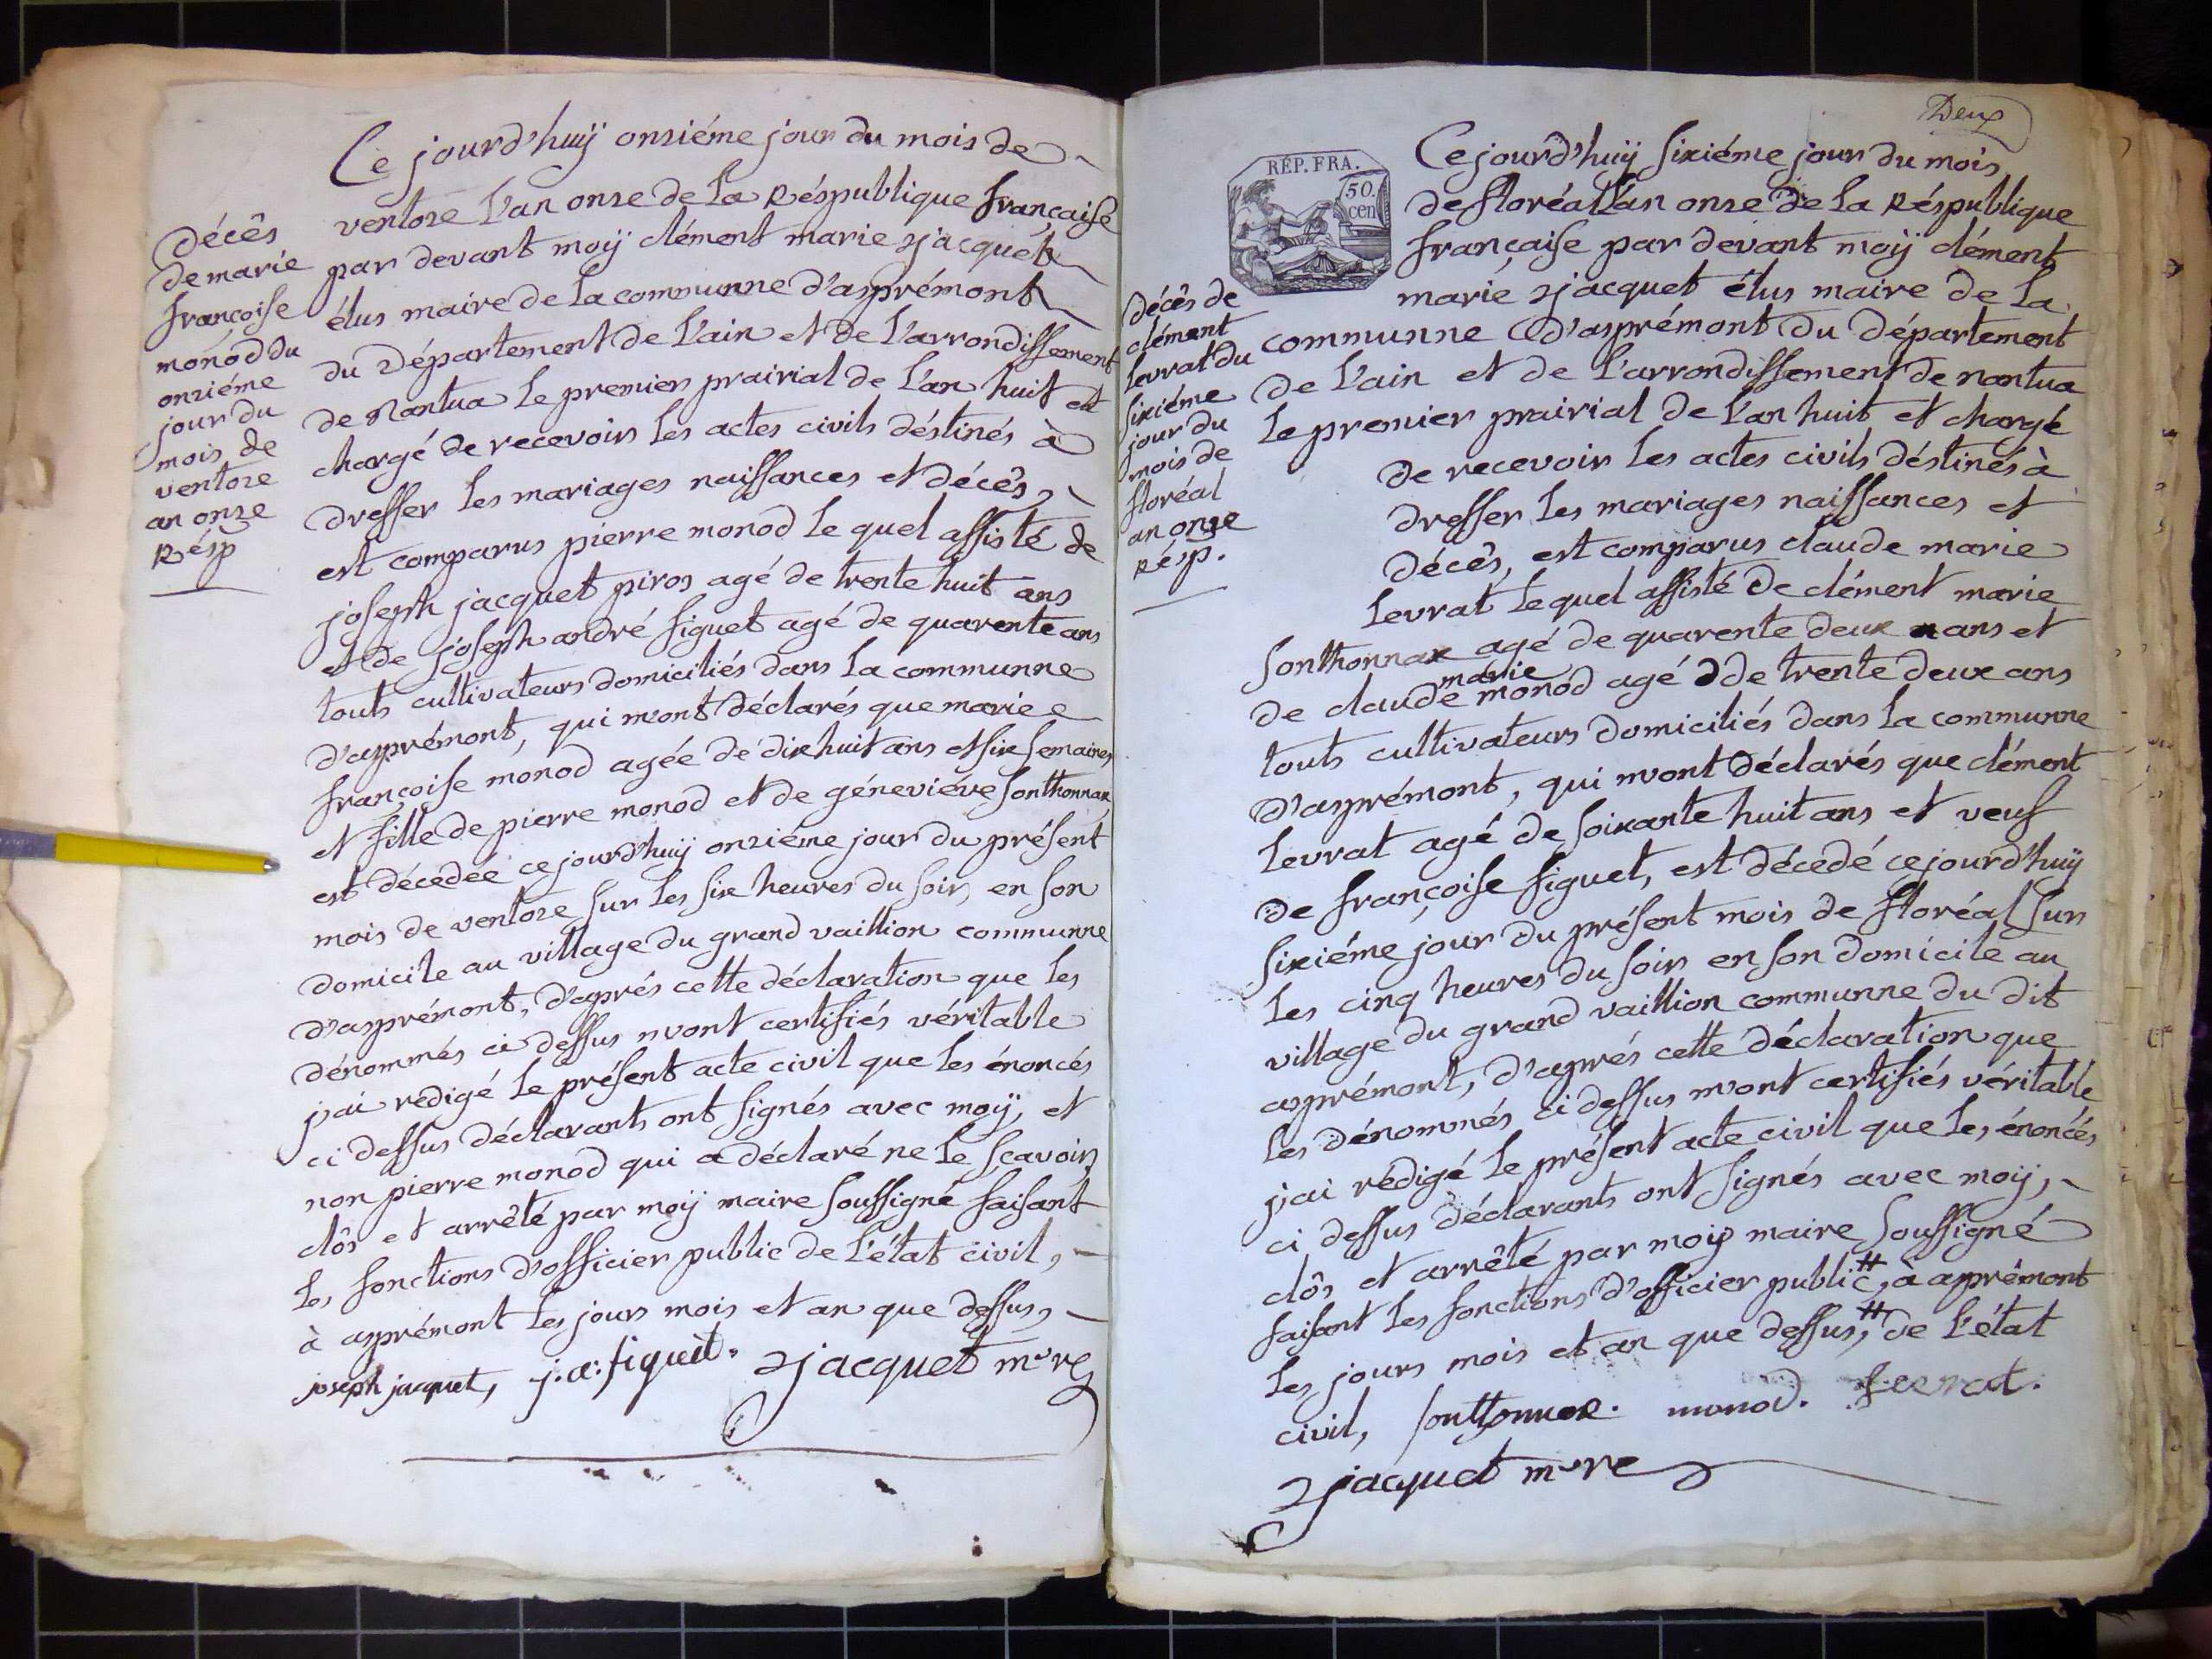 Ce jourd'huÿ onziéme jour du mois de
ventoze L'an onze de La Républlique française
par devant moÿ clément marie jacquet
élus maire de La communne d'asprémont
du Département de L'ain et de L'arrondissement
de Nantua Le premier prairial de L'an huit et
chargé de recevoir Les actes civils déstinés à
dresser Les mariages naissances et décès,
est comparus pierre monod le quel assisté de
joseph jacquet piros agé de trente huit ans
et de joseph andré figuet agé de quarente ans
touts cultivateurs domiciliés dans La communne
d'asprémont, qui m'ont déclarés que marie
françoise monod agée de dix huit ans et six semaines
et fille de pierre monod et de géneviéve Sonthonnax
est décedée ce jourd'huÿ onziéme jour du présent
mois de ventoze sur Les six heures du soir, en son
domicile au village du grand vaillion communne
d'asprémont, d'aprés cette déclaration que les
dénommés ci dessus m'ont certifiés véritable
j'ai redigé Le présent acte civil que Les énoncés
ci dessus déclarants ont signés avec moÿ, et
non pierre monod qui a déclaré ne Le sçavoir
clôs et arrêté par moÿ maire soussigné faisant
Les fonctions d'officier public de L'état civil,
à asprémont Les jours mois et an que dessus,
joseph jacquet, j: a: figuet. jacquet mre
décês
de marie
françoise
monod du
onziéme
jour du
mois de
ventoze
an onze
Résp
Deux
RÉP. FRA.
50.
cen
Ce jourd'huÿ sixiéme jour du mois
de floréal L'an onze de La Réspublique
française par devant moÿ clément
marie jacquet élus maire de La
communne d'asprémont du Département
de L'ain et de L'arrondissement de nantua
Le premier prairial de L'an huit et chargé
de recevoir Les actes civils déstinés à
dresser Les mariages naissances et
décês, est comparus claude marie
Levrat Le quel assisté de clément marie
Sonthonnax agé de quarente deux ans et
de claude marie monod agé de trente deux ans
touts cultivateurs domiciliés dans La communne
d'asprémont, qui m'ont déclarés que clément
Levrat agé de soixante huit ans et veuf
de françoise figuet, est décedé ce jourd'huÿ
sixiéme jour du présent mois de floréal sur
Les cinq heures du soir en son domicile au
village du grand vaillion communne du dit
asprémont, d'aprés cette déclaration que
Les dénommés ci dessus m'ont certifiés véritable
j'ai rédigé Le présent acte civil que Les énoncés
ci dessus déclarants ont signés avec moÿ,
clôs et arrêté par moÿ maire soussigné
faisant Les fonctions d'officier public #, à asprémont
Les jours mois et an que dessus, # de L'état
civil, Sonthonnax. monod. Levrat.
jacquet mre
décês de
clément
Levrat du
sixiéme
jour du
mois de
floréal
an onze
Rép.